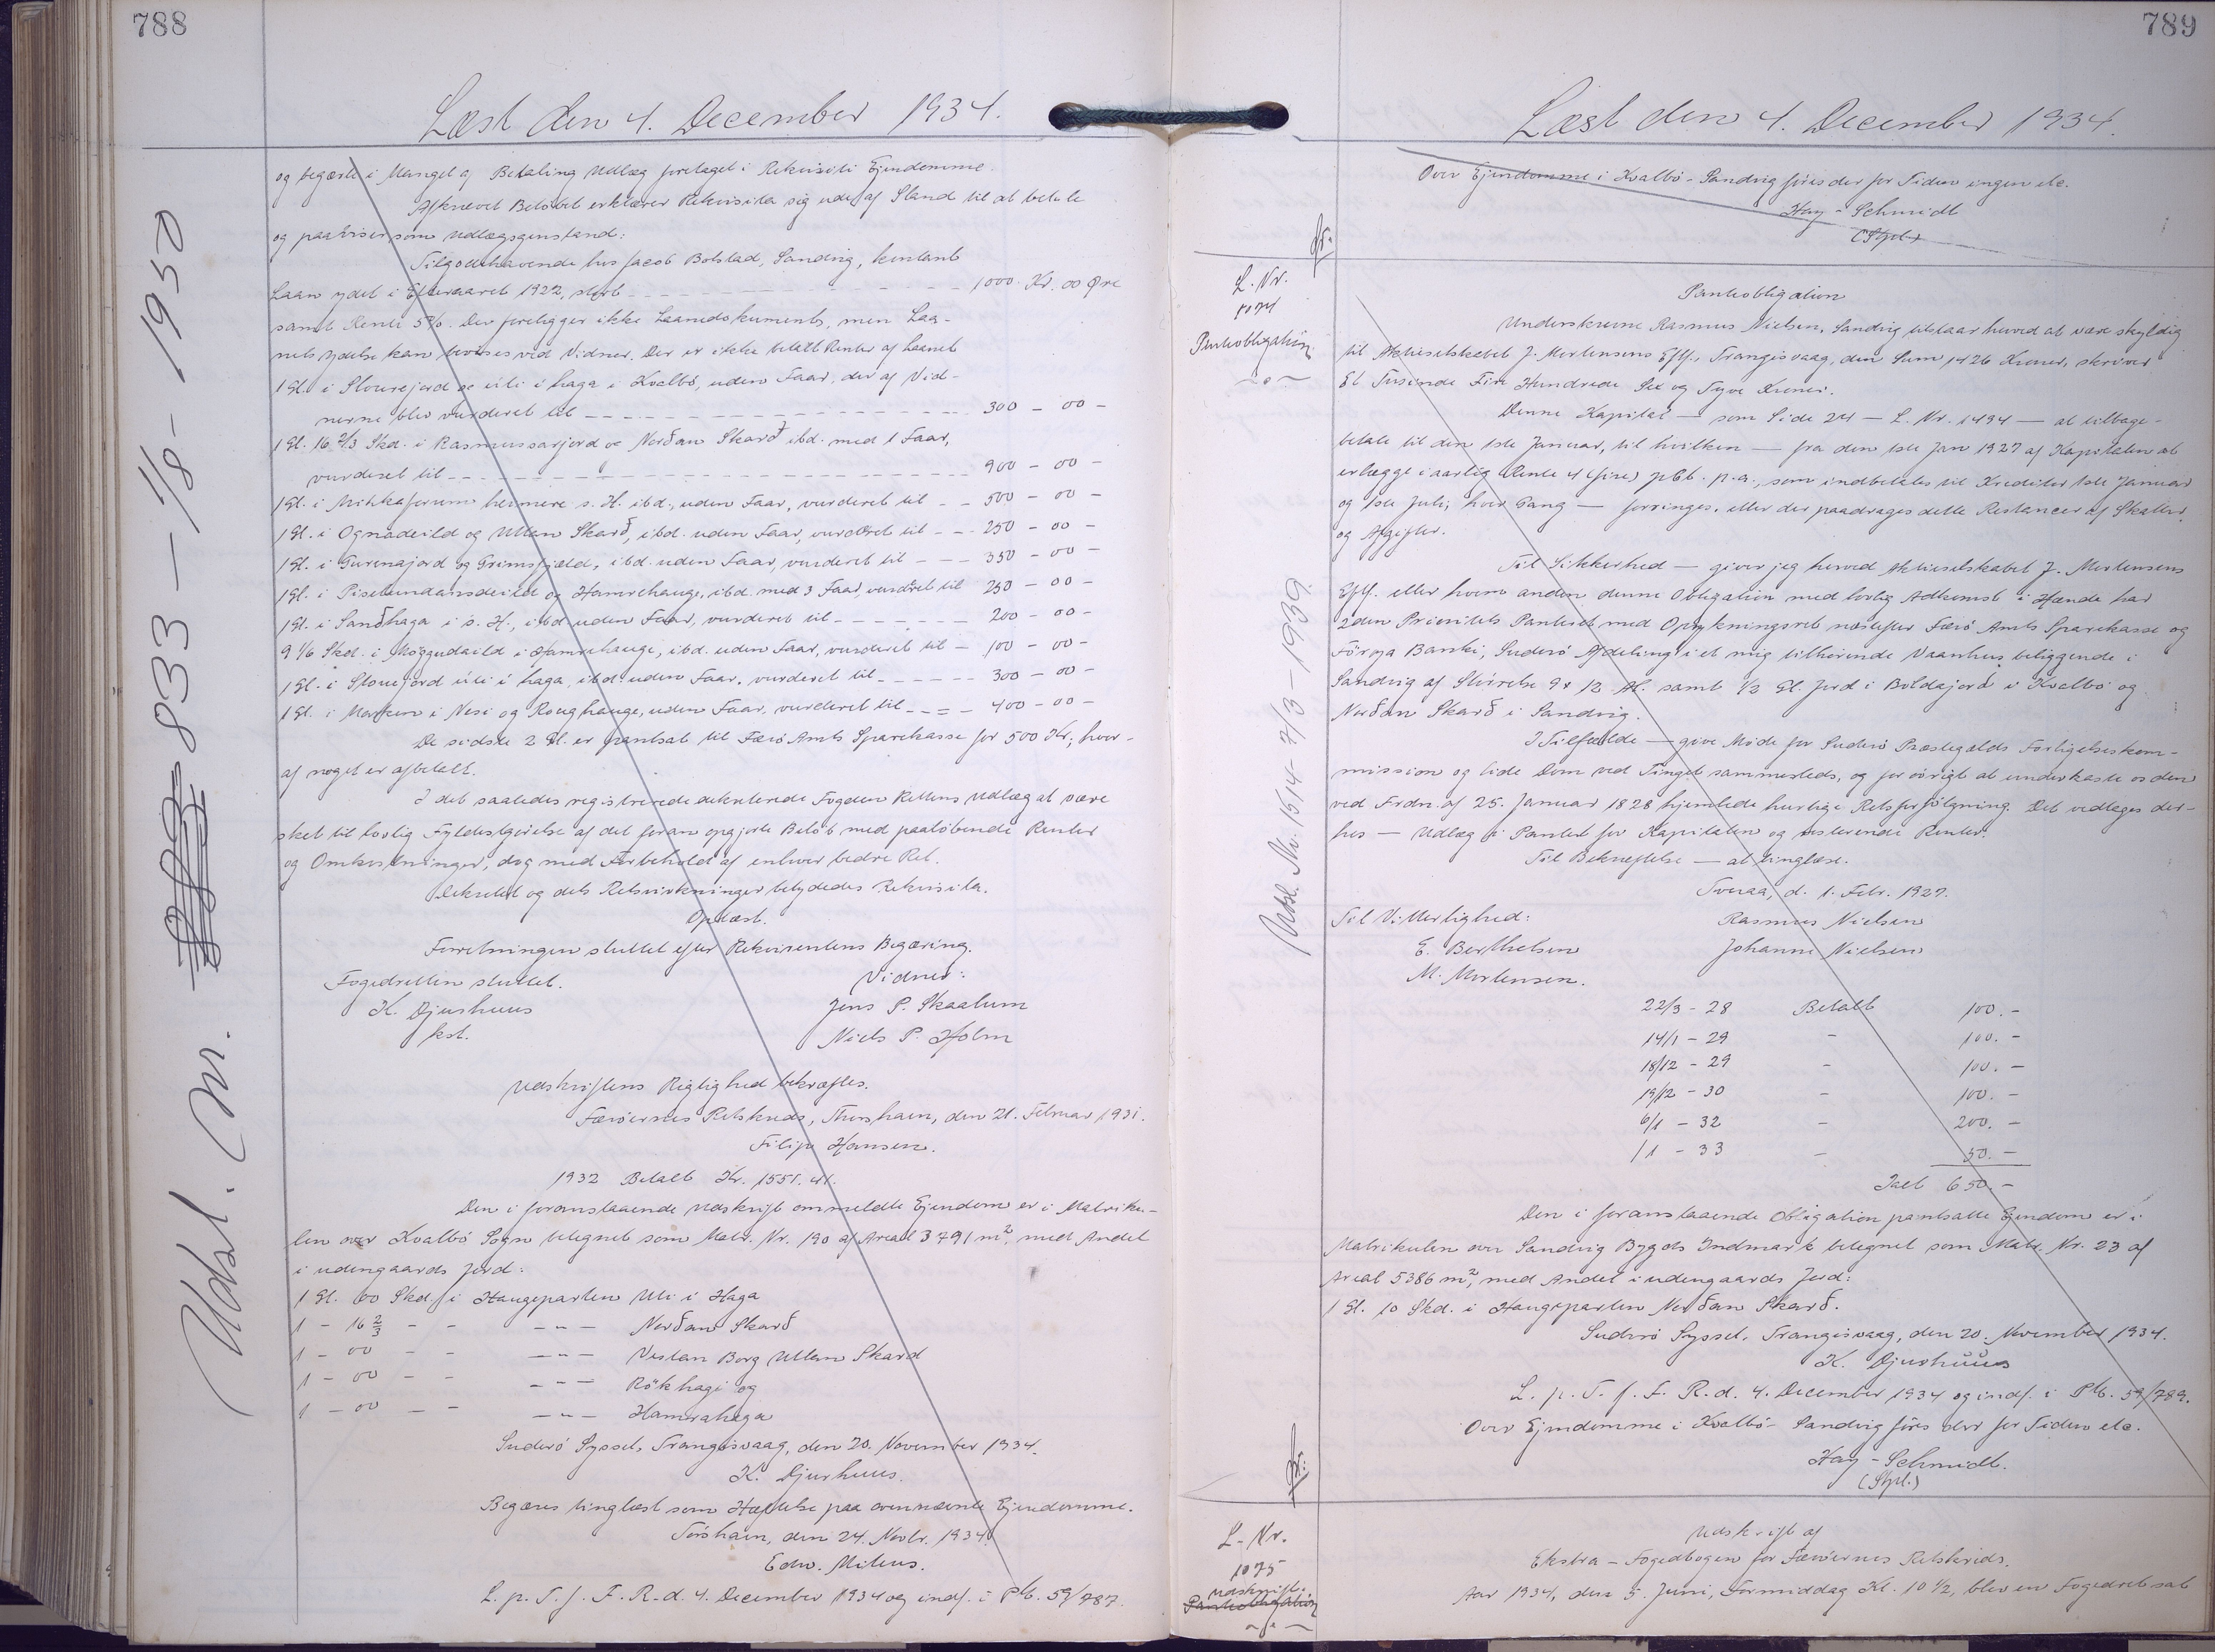 788
Læst den 4. December 1934.
og begærte i Mangel af Betaling Udlæg foretaget i Rekvisiti Ejendomme
Afkrævet Beløbet erklærer Rekvisita sig ude af Stand til at betale
og paaviser som Udlægsgenstand:
Tilgodehavende hos Jacob Bolstad, Sandvig, kontant
Laan ydet i Efteraaret 1922, stort — 1000 Kr. 00 Øre
samt Renter 5%. Der foreligger ikke Laanedokument, men Laa-
nets ydelse kan bevises ved Vidner. Der er ikke betalt Renter af Laanet
1 Gl. i Stourejord úti í haga i Kvalbø, uden Faar, der af Vid-
nerne blev vurderet til — 300 – 00 –
1 Gl. 16 2/3 Skd. i Rasmussarjord og Norðan Skarð ibd. med 1 Faar,
vurderet til — 900 – 00 –
1 Gl. i heimere s. H. ibd., uden Faar, vurderet til – – 500 – 00 –
1 Gl. i Ognadeild og Uttan Skarð, ibd. uden Faar, vurderet til – – 250 – 00 –
1 Gl. i Gurinajord og Grimsfjæld, ibd. uden Faar, vurderet til – – – 350 – 00 –
1 Gl. i og Hamrehauge, ibd. med 3 Faar, vurderet til 250 – 00 –
1 Gl. i Sandhaga i s. H., ibd. uden Faar, vurderet til – – – 200 – 00 –
9 1/6 Skd. i Hamrehauge, ibd. uden Faar, vurderet til – 100 – 00 –
1 Gl. i Stouejord úti í haga, ibd. uden Faar, vurderet til – – – 300 – 00 –
1 Gl. i Marken i Nesi og Roughauge, uden Faar, vurderet til – – – 400 – 00 –
De sidste 2 Gl. er pantsat til Færø Amts Sparekasse for 500 Kr., hvor-
af noget er afbetalt.
I det saaledes registrerede dekreterede Fogden Rettens Udlæg at være
sket til lovlig Fyldestgørelse af det foran opgjorte Beløb med paaløbende Renter
og Omkostninger, dog med Forbehold af enhver bedre Ret.
Dekretet og dets Retsvirkninger betydedes Rekvisita.
Oplæst.
Forretningen sluttet efter Rekvirentens Begæring.
Fogedretten sluttet. Vidner:
K. Djurhuus Jens P. Skaalum
kst. Niels P. Holm
Udskriftens Rigtighed bekræftes.
Færøernes Retskreds, Thorshavn, den 21. Februar 1931.
Filip Hansen.
1932 Betalt Kr. 1551.41.
Den i foranstaaende Udskrift ommeldte Ejendom er i Matriku-
len over Kvalbø Sogn betegnet som Matr. Nr. 190 af Areal 3791 m², med Andel
i udengaards Jord:
1 Gl. 00 Skd. i Haugeparten Uti i Haga
1 – 16 2/3 – – – " – Norðan Skarð
1 – 00 – – – " – Vestan Borg Uttan Skard
1 – 00 – – – " – Rókhagi og
1 – 00 – – – " – Hamrahaga
Suderø Syssel, Trangisvaag, den 20. November 1934.
K. Djurhuus.
Begæres tinglæst som Hæftelse paa ovennævnte Ejendomme.
Tórshavn, den 24. Novbr. 1934.
Edw. Mitens.
L. p. T. f. F. R. d. 4. December 1934 og indf. i Pb. 59/787.
Udsl. Nr. 833 – 1/8 – 1950
789
Læst den 4. December 1934.
Over Ejendomme i Kvalbø-Sandvig føres der for Tiden ingen etc.
Hay-Schmidt
(Sfgt.)
L. Nr.
1074
Pantobligation
Pantobligation
Underskrevne Rasmus Nielsen, Sandvig tilstaar herved at være skyldig
til Aktieselskabet J. Mortensens Eftf., Trangisvaag, den Sum 1426 Kroner, skriver
Et Tusinde Fire Hundrede Sex og Tyve Kroner.
Denne Kapital — som Side 24 — L. Nr. 1494 — at tilbage-
betale til den 1ste Januar, til hvilken — fra den 1ste Jan 1927 af Kapitalen at
erlægge i aarlig Rente 4 (fire) pCt. p.a., som indbetales til Kreditor 1ste Januar
og 1ste Juli, hver Gang — forringes, eller der paadrages dette Restancer af Skatter
og Afgifter.
Til Sikkerhed — giver jeg herved Aktieselskabet J. Mortensens
Eftf. eller hvem anden denne Obligation med lovlig Adkomst i Hænde har
2den Prioritets Panteret med Oprykningsret næstefter Færø Amts Sparekasse og
Förya Banki, Suderø Afdeling i et mig tilhørende Vaanhus beliggende i
Sandvig af Størrelse 9 x 12 Al. samt 1/2 Gl. Jord i Boldajord i Kvalbø og
Norðan Skarð i Sandvig.
I Tilfælde — give Møde for Suderø Præstegælds Forligelseskom-
mission og lide Dom ved Tinget sammesteds, og for øvrigt at underkaste os den
ved Frdn. af 25. Januar 1828 hjemlede hurtige Retsforfølgning. Det vedtages der-
hos — Udlæg i Pantet for Kapitalen og resterende Renter.
Til Bekræftelse — at tinglæse.
Tveraa, d. 1. Febr. 1927.
Til Vitterlighed: Rasmus Nielsen
E. Berthelsen Johanne Nielsen
M. Mortensen.
22/3 – 28 Betalt 100. –
14/1 – 29 – 100. –
18/12 – 29 – 100. –
19/12 – 30 – 100. –
6/1 – 32 – 200. –
/1 – 33 – 50. –
Ialt 650. –
Den i foranstaaende Obligation pantsatte Ejendom er i
Matrikulen over Sandvig Bygds Indmark betegnet som Matr. Nr. 23 af
Areal 5386 m², med Andel i udengaards Jord:
1 Gl. 10 Skd. i Haugeparten Norðan Skarð.
Suderø Syssel, Trangisvaag, den 20. November 1934.
K. Djurhuus
L. p. T. f. F. R. d. 4. December 1934 og indf. i Pb. 59/789.
Over Ejendomme i Kvalbø-Sandvig føres der for Tiden etc.
Hay-Schmidt.
(Sfgt.)
Udsl. Nr. 1514 – 7/3 – 1939.
L. Nr.
1075
Udskrift
Pantobligation
Udskrift af
Ekstra-Fogedbogen for Færøernes Retskreds.
Aar 1934, den 5. Juni, Formiddag Kl. 10 1/2, blev en Fogedret sat